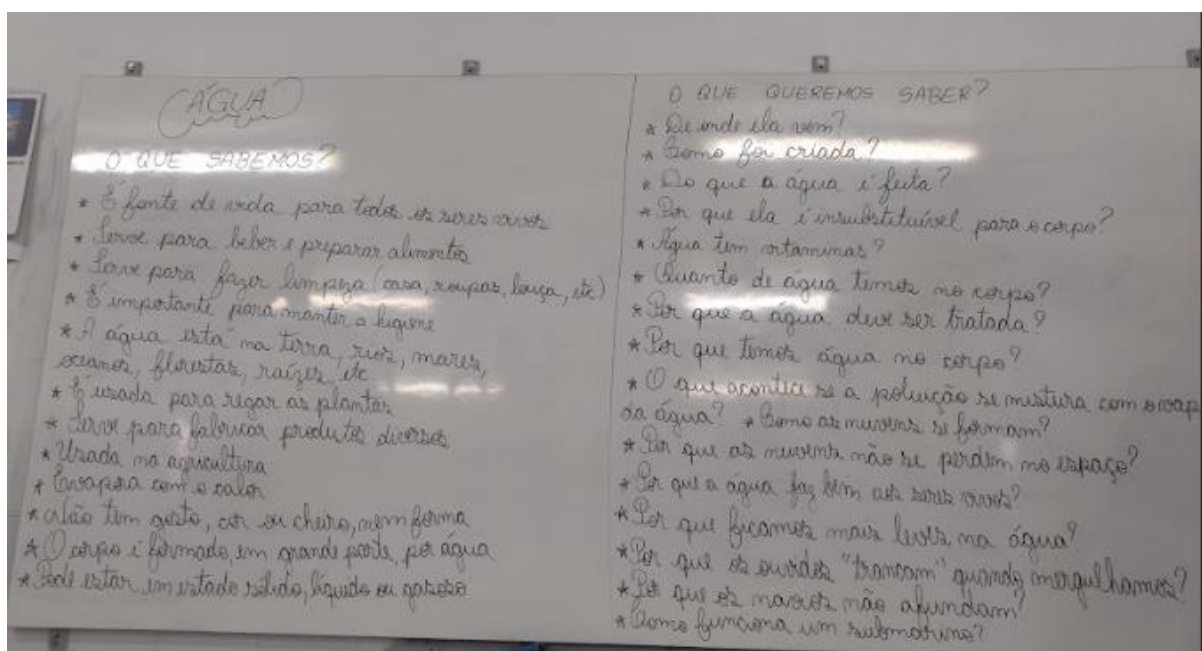 ÁGUA
O QUE SABEMOS?
* É fonte de vida para todos os seres vivos
* Serve para beber e preparar alimentos
* Serve para fazer limpeza (casa, roupas, louça, etc)
* É importante para manter a higiene
* A água está na terra, rios, mares,
oceanos, florestas, raízes, etc
* É usada para regar as plantas
* Serve para fabricar produtos diversos
* Usada na agricultura
* Evapora com o calor
* Não tem gosto, cor ou cheiro, nem forma
* O corpo é formado, em grande parte, por água
* Pode estar em estado sólido, líquido ou gasoso
O QUE QUEREMOS SABER?
* De onde ela vem?
* Como foi criada?
* Do que a água é feita?
* Por que ela é insubstituível para o corpo?
* Água tem vitaminas?
* Quanto de água temos no corpo?
* Por que a água deve ser tratada?
* Por que temos água no corpo?
* O que acontece se a poluição se mistura com o vap
da água? * Como as nuvens se formam?
* Por que as nuvens não se perdem no espaço?
* Por que a água faz bem aos seres vivos?
* Por que ficamos mais leves na água?
* Por que os ouvidos "trancam" quando mergulhamos?
* Por que os navios não afundam?
* Como funciona um submarino?